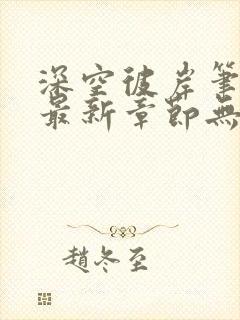 深空彼岸筆
最新章節無
趙冬至